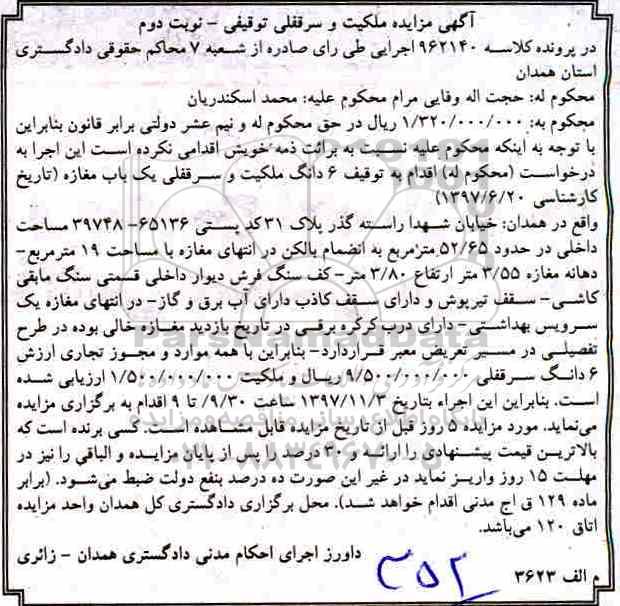 آگهی مزایده ملکیت و سرقفلی توقیفی - نوبت دوم
در پرونده کلاسه ۹۶۲۱۴۰ اجرایی طی رای صادره از شعبه ۷ محاکم حقوقی دادگستری
استان همدان
محکوم له: حجت اله وفایی مرام محکوم علیه: محمد اسکندریان
محکوم به: ۱/۳۲۰/۰۰۰/۰۰۰ ریال در حق محکوم له و نیم عشر دولتی برابر قانون بنابراین
با توجه به اینکه محکوم علیه نسبت به برائت ذمه خویش اقدامی نکرده است این اجرا به
درخواست (محکوم له) اقدام به توقیف ۶ دانگ ملکیت و سرقفلی یک باب مغازه (تاریخ
کارشناسی ۱۳۹۷/۶/۲۰)
واقع در همدان: خیابان شهدا راسته گذر پلاک ۳۱ کد پستی ۶۵۱۳۶- ۳۹۷۴۸ مساحت
داخلی در حدود ۵۲/۶۵ مترمربع به انضمام بالکن در انتهای مغازه با مساحت ۱۹ مترمربع-
دهانه مغازه ۳/۵۵ متر ارتفاع ۳/۸۰ متر- کف سنگ فرش دیوار داخلی قسمتی سنگ مابقی
کاشی- سقف تیرپوش و دارای سقف کاذب دارای آب برق و گاز- در انتهای مغازه یک
سرویس بهداشتی- دارای درب کرکره برقی در تاریخ بازدید مغازه خالی بوده در طرح
تفصیلی در مسیر تعریض معبر قراردارد- بنابراین با همه موارد و مجوز تجاری ارزش
۶ دانگ سرقفلی ۹/۵۰۰/۰۰۰/۰۰۰ ریال و ملکیت ۱/۵۰۰/۰۰۰/۰۰۰ ارزیابی شده
است. بنابراین این اجراء بتاریخ ۱۳۹۷/۱۱/۳ ساعت ۹/۳۰/ تا ۹ اقدام به برگزاری مزایده
می‌نماید. مورد مزایده ۵ روز قبل از تاریخ مزایده قابل مشاهده است. کسی برنده است که
بالاترین قیمت پیشنهادی را ارائه و ۳۰ درصد را پس از پایان مزایده و الباقی را نیز در
مهلت ۱۵ روز واریز نماید در غیر این صورت ده درصد بنفع دولت ضبط می‌شود. (برابر
ماده ۱۲۹ ق اج مدنی اقدام خواهد شد). محل برگزاری دادگستری کل همدان واحد مزایده
اتاق ۱۲۰ می‌باشد.
داورز اجرای احکام مدنی دادگستری همدان - زائری
م الف ۳۶۲۳
۳۵۲
ParsNamadData